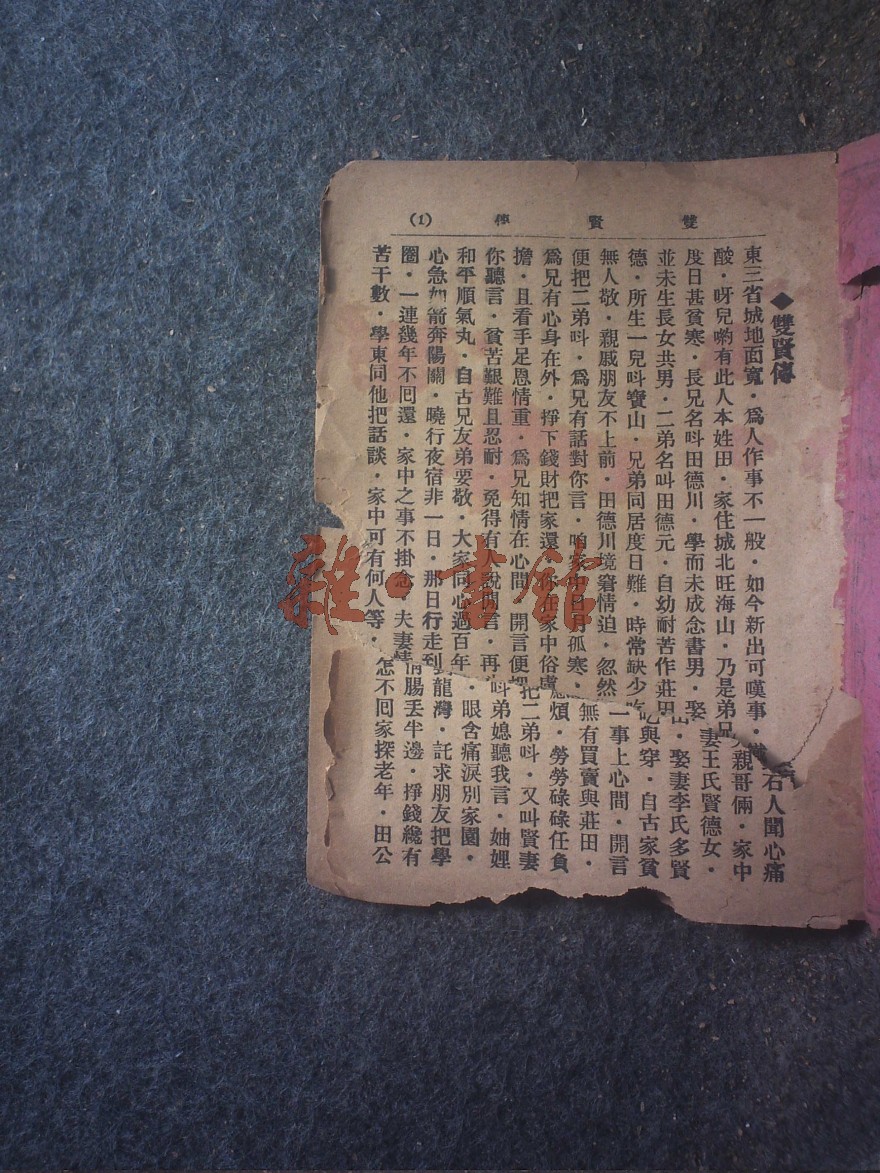 雙賢傳 (1)
◆雙賢傳
東三省城地面寬．爲人作事不一般．如今新出可嘆事．石人聞心痛
酸．呀兒喲有此人本姓田．家住城北旺海山．乃是弟兄親哥倆．家中
度日甚貧寒．長兄名呌田德川．學而未成念書男．娶妻王氏賢德女．
並未生長女共男．二弟名呌田德元．自幼耐苦作莊田．娶妻李氏多賢
德．所生一兒呌寳山．兄弟同居度日難．時常缺少吃與穿．自古家貧
無人敬．親戚朋友不上前．田德川境窘情迫．忽然一事上心間．開言
便把二弟呌．爲兄有話對你言．咱家中日月孤寒．無有買賣與莊田．
爲兄有心身在外．掙下錢財把家還．你在家中俗慮煩．勞勞碌碌任負
擔．且看手足恩情重．爲兄知情在心間．開言便把二弟呌．又叫賢妻
你聽言．貧苦艱難且忍耐．免得有人說閒言．再呌弟媳聽我言．妯娌
和平順氣丸．自古兄友弟要敬．大家同心過百年．眼含痛淚別家園．
心急如箭奔陽關．曉行夜宿非一日．那日行走到龍灣．託求朋友把學
圈．一連幾年不囘還．家中之事不掛念．夫妻情腸丟半邊．掙錢纔有
苦干數．學東同他把話談．家中可有何人等．怎不囘家探老年．田公
雜·書館